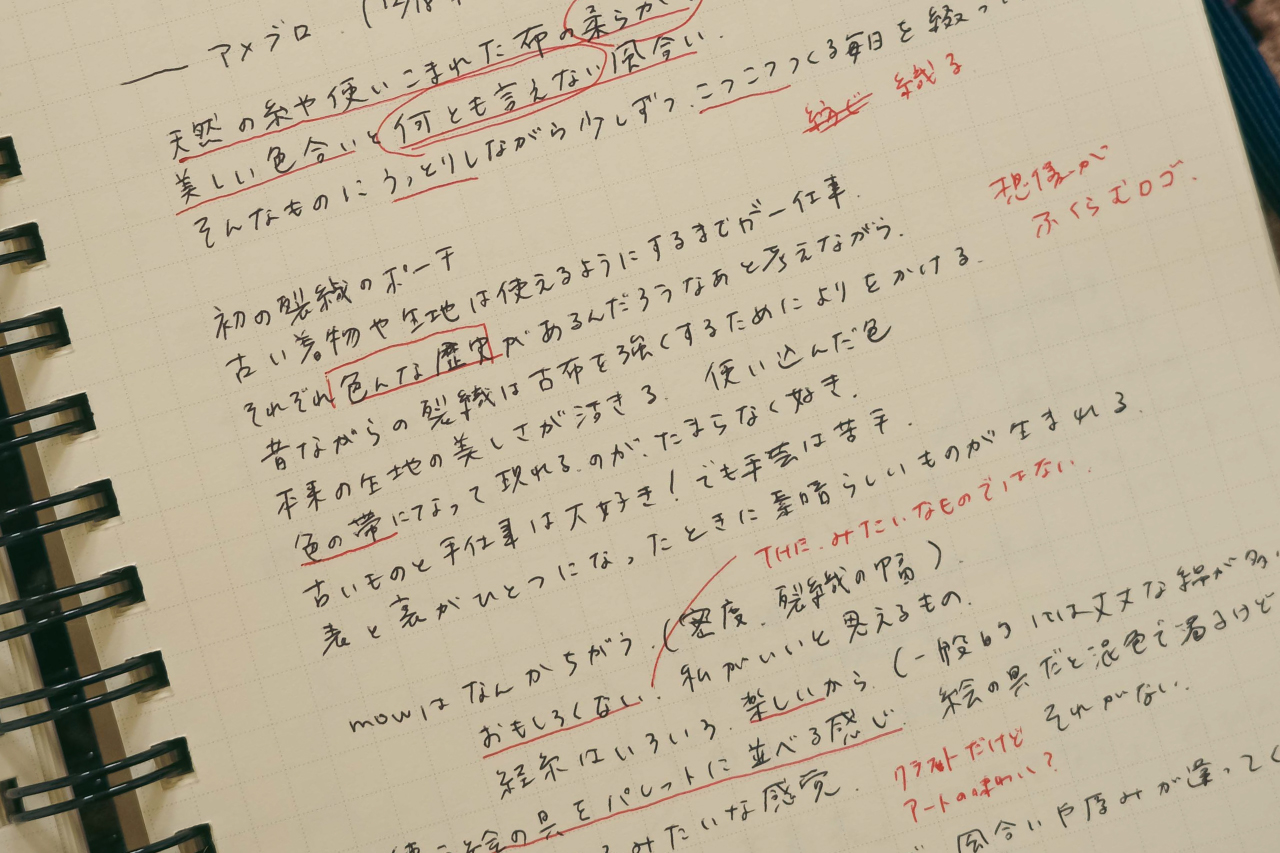 アメブロ. (12/18
天然の糸や使いこまれた布の柔らか
美しい色合いと何とも言えない風合い.
そんなものにうっとりしながら少しずつ.こつこつつくる毎日を綴っ
織る
初の裂織のポーチ
古い着物や生地は使えるようにするまでが一仕事.
それぞれ色んな歴史があるんだろうなあと考えながら.
想像が
ふくらむロゴ.
昔ながらの裂織は古布を強くするためによりをかける.
本来の生地の美しさが活きる. 使い込んだ色
色の帯になって現れるのが.たまらなく好き.
古いものと手仕事は大好き!でも手芸は苦手.
表と裏がひとつになったときに素晴らしいものが生まれる.
THE.みたいなものではない.
mowはなんかちがう.(密度.裂織の幅).
おもしろくない.私がいいと思えるもの.
経糸はいろいろ.楽しいから.(一般的には丈夫な綿が多
絵の具をパレットに並べる感じ. 絵の具だと混色で濁るけど
みたいな感覚. それがない.
クラフトだけど
アートの味わい?
風合いや厚みが違って